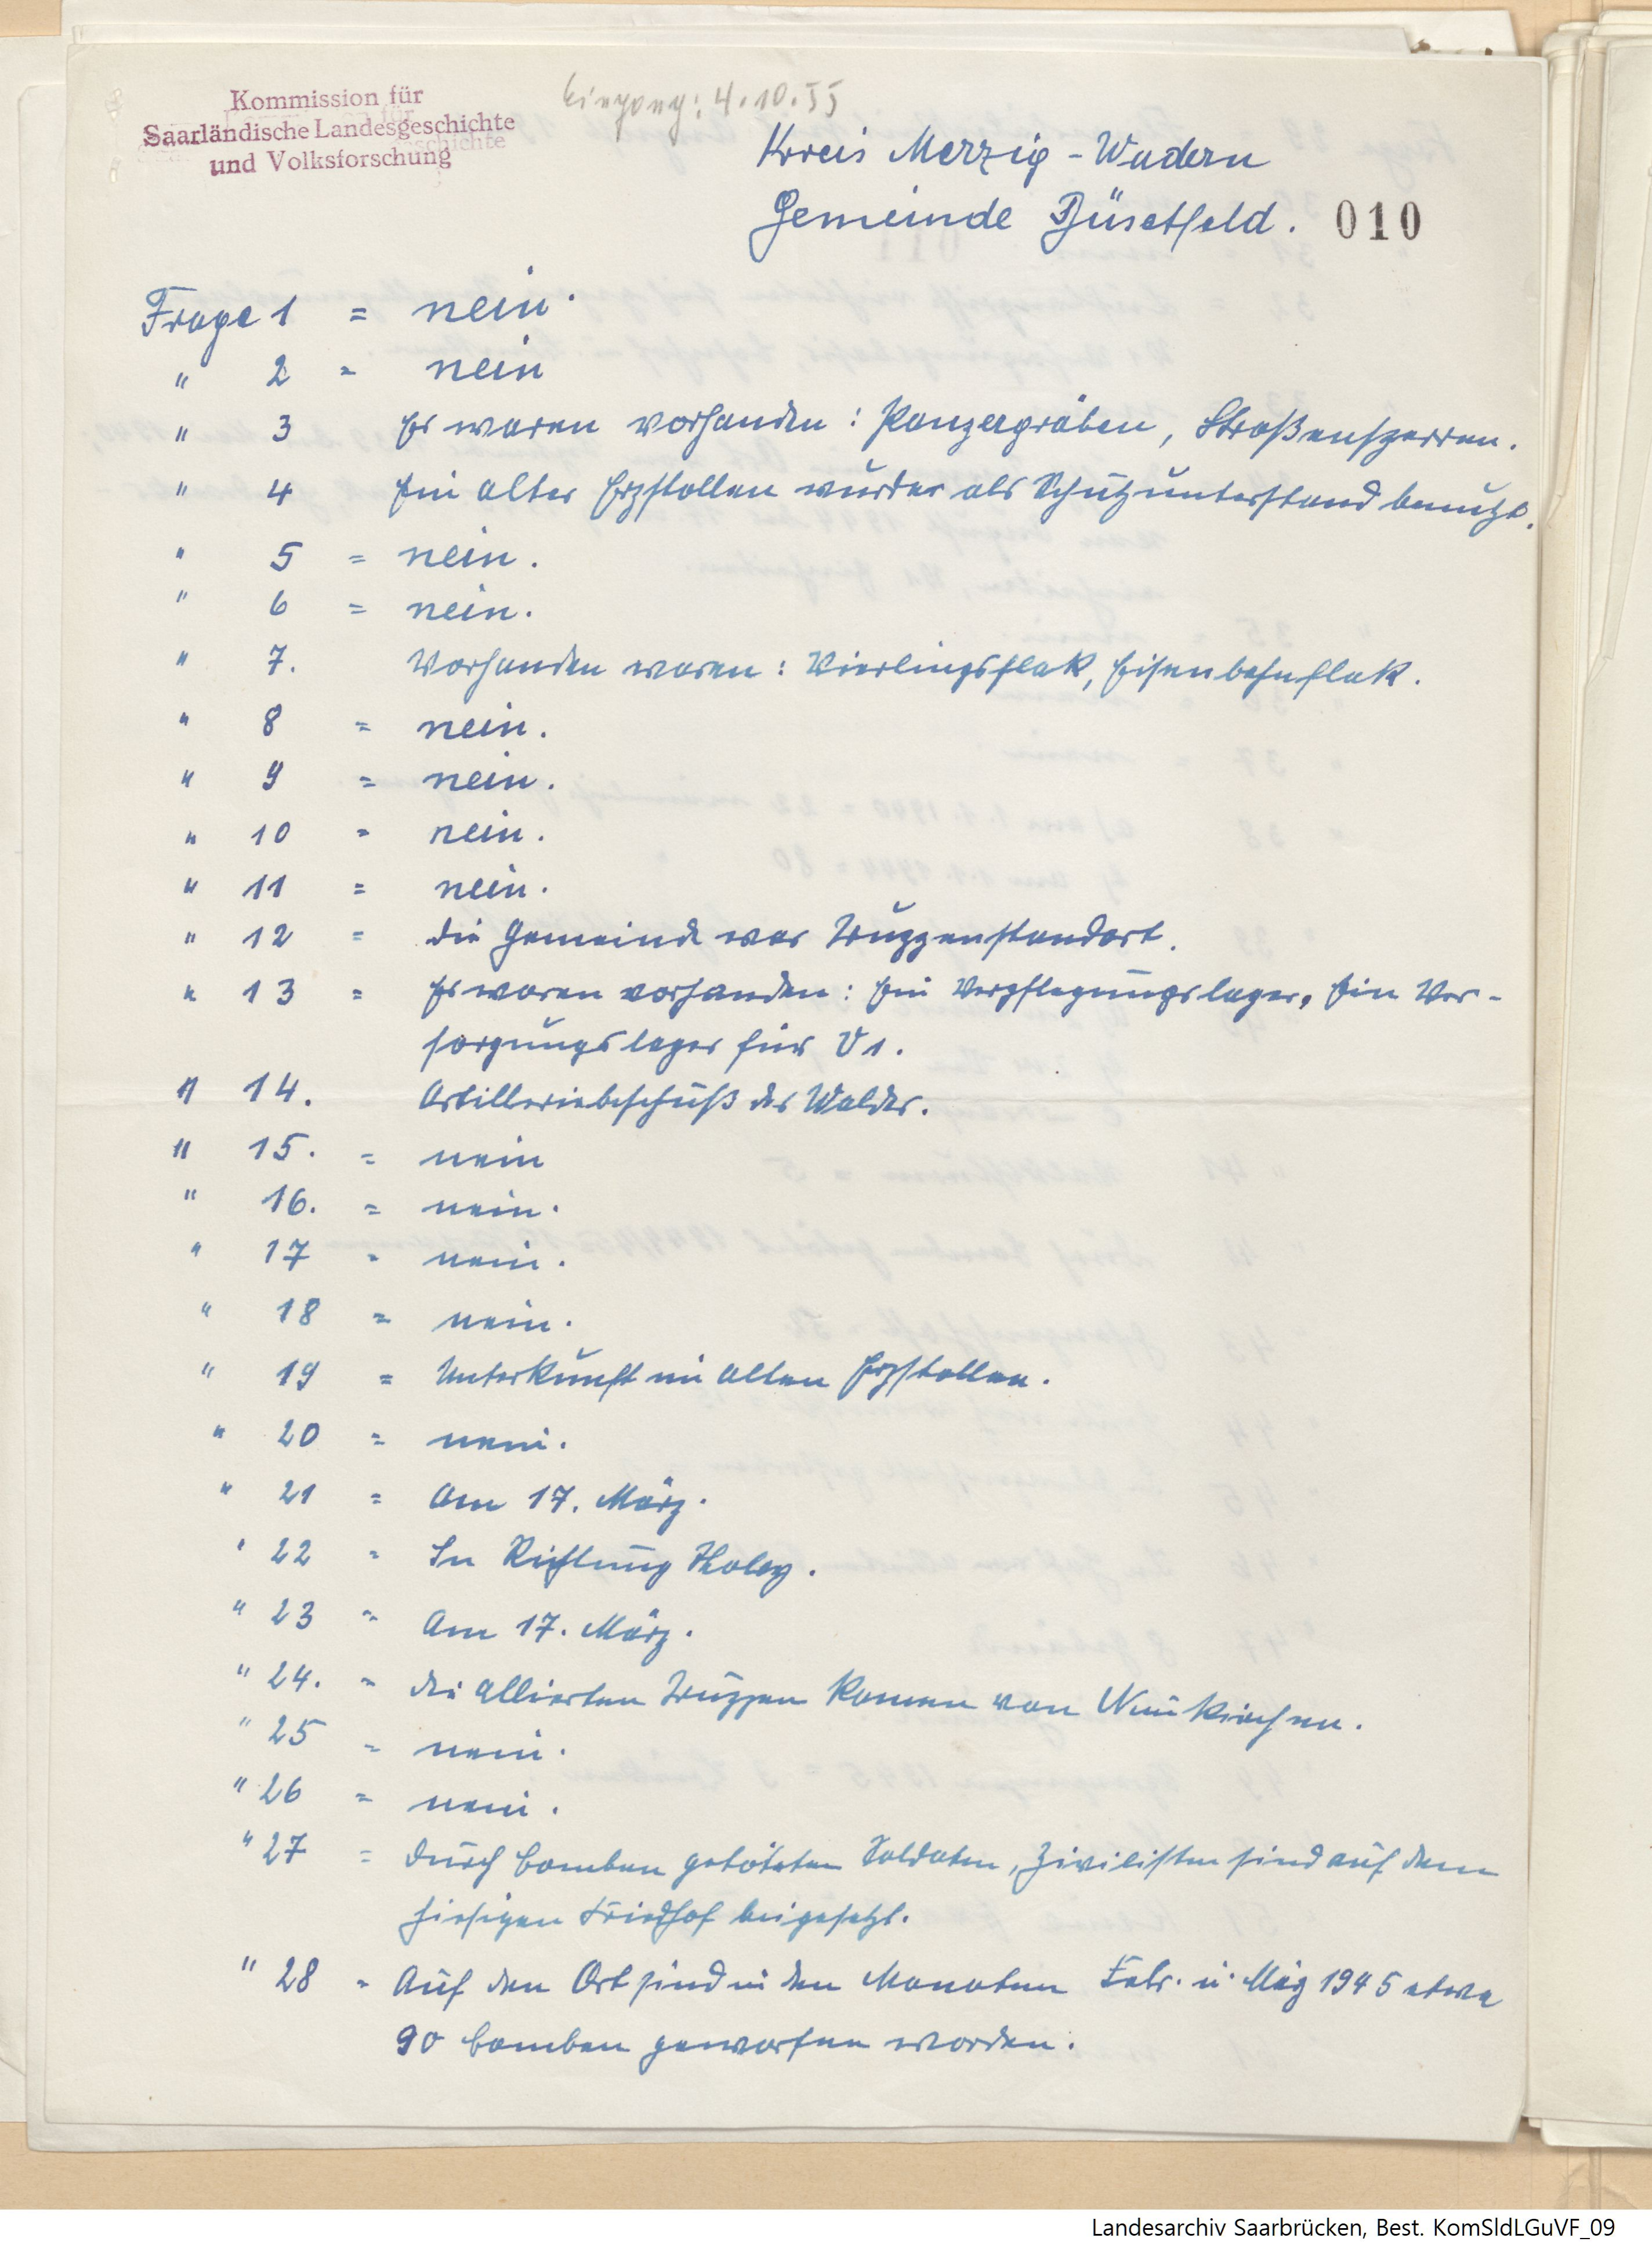 Kommission für
Saarländische Landesgeschichte
und Volksforschung
Eingang: 4.10.55
Kreis Merzig-Wadern
Gemeinde Büschfeld. 010
Frage 1 = nein.
" 2 = nein
" 3 Es waren vorhanden: Panzergräben, Straßensperren.
" 4 Ein alter Erzstollen wurde als Schutzunterstand benutzt.
" 5 = nein.
" 6 = nein.
" 7. Vorhanden waren: Vierlingsflak, Eisenbahnflak.
" 8 = nein.
" 9 = nein.
" 10 = nein.
" 11 = nein.
" 12 = die Gemeinde war Truppenstandort.
" 13 = Es waren vorhanden: Ein Verpflegungslager, Ein Ver-
sorgungslager für V1.
" 14. Artilleriebeschuß des Waldes.
" 15. = nein
" 16. = nein.
" 17 = nein.
" 18 = nein.
" 19 = Unterkunft im alten Erzstollen.
" 20 = nein.
" 21 = Am 17. März.
" 22 = In Richtung Tholey.
" 23 = Am 17. März.
" 24. = die alliierten Truppen kamen von Nunkirchen.
" 25 = nein.
" 26 = nein.
" 27 = durch Bomben getöteten Soldaten, Zivilisten sind auf dem
hiesigen Friedhof beigesetzt.
" 28 = Auf den Ort sind in den Monaten Febr. u. März 1945 etwa
90 Bomben geworfen worden.
Landesarchiv Saarbrücken, Best. KomSldLGuVF_09